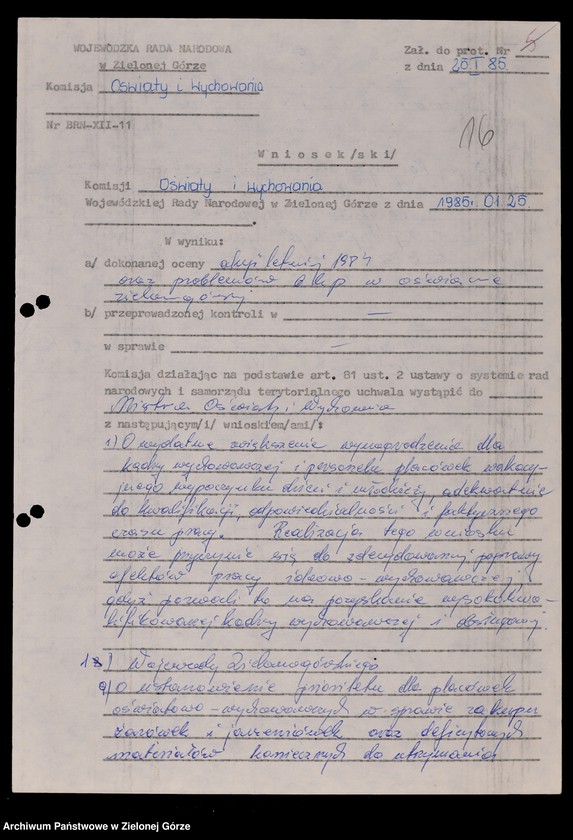 WOJEWÓDZKA RADA NARODOWA
w Zielonej Górze
Zał. do prot. Nr 5
z dnia 25.I 85.
Komisja Oświaty i Wychowania
Nr BRN-XII-11
16
Wniosek/ski/
Komisji Oświaty i Wychowania
Wojewódzkiej Rady Narodowej w Zielonej Górze z dnia 1985r. 01.25
W wyniku:
a/ dokonanej oceny akcji letniej 1984
oraz problemów bhp w oświacie
zielonogórskiej
b/ przeprowadzonej kontroli w —
w sprawie —
Komisja działając na podstawie art. 81 ust. 2 ustawy o systemie rad
narodowych i samorządu terytorialnego uchwala wystąpić do
Ministra Oświaty i Wychowania
z następującym/i/ wnioskiem/ami/:
1) O wydatne zwiększenie wynagrodzenia dla
kadry wychowawczej i personelu placówek wakacyj-
nego wypoczynku dzieci i młodzieży, adekwatnie
do kwalifikacji, odpowiedzialności i faktycznego
czasu pracy. Realizacja tego wniosku
może przyczynić się do zdecydowanej poprawy
efektów pracy ideowo-wychowawczej,
gdyż pozwoli to na pozyskanie wysokokwa-
lifikowanej kadry wychowawczej i obsługowej.
1) Wojewody Zielonogórskiego
a) O ustanowienie priorytetu dla placówek
oświatowo-wychowawczych w sprawie zakupu
żarówek i jarzeniówek oraz deficytowych
materiałów koniecznych do utrzymania
Archiwum Państwowe w Zielonej Górze